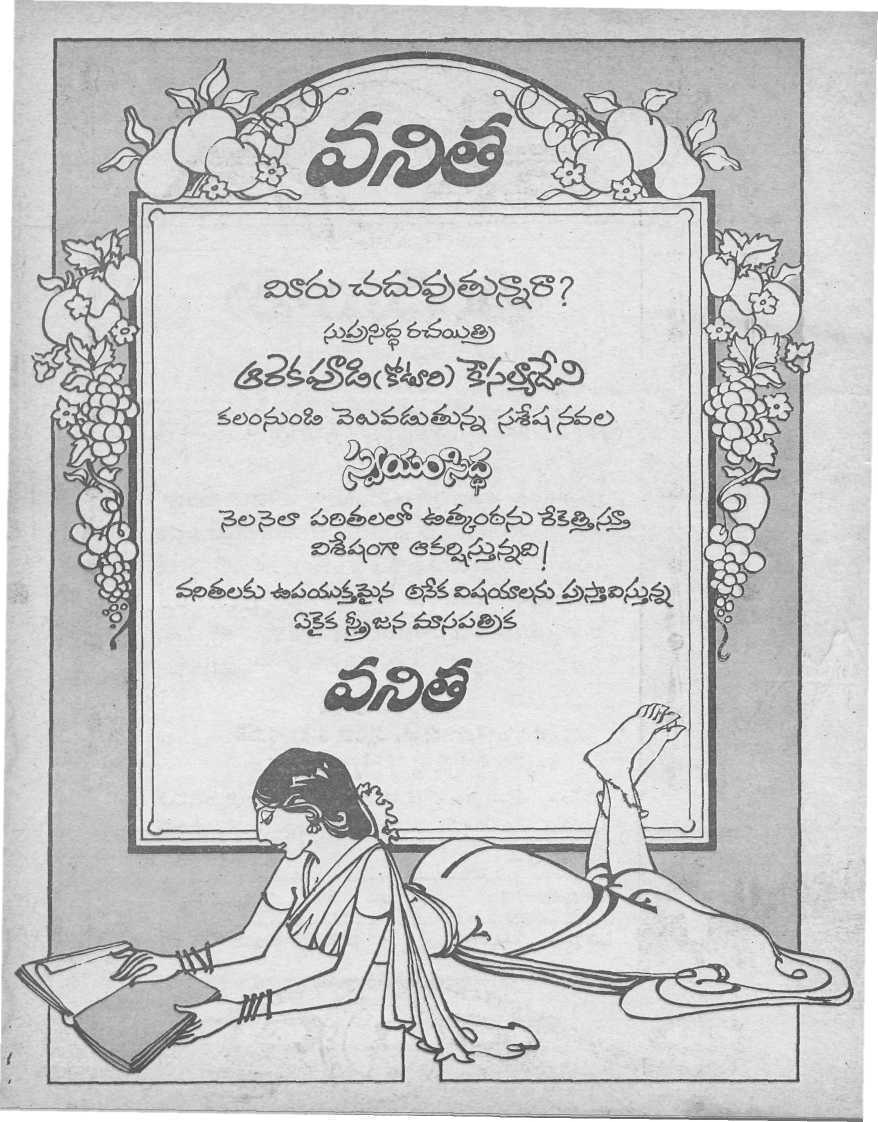 వనిత
మీరు చదువుతున్నారా?
సుప్రసిద్ధ రచయిత్రి
ఆరెకపూడి (కోటూరి) కౌసల్యాదేవి
కలంనుండి వెలువడుతున్న సశేష నవల
స్వయంసిద్ధ
నెల నెలా పఠితలలో ఉత్కంఠను రేకెత్తిస్తూ
విశేషంగా ఆకర్షిస్తున్నది!
వనితలకు ఉపయుక్తమైన అనేక విషయాలను ప్రస్తావిస్తున్న
ఏకైక స్త్రీజన మాసపత్రిక
వనిత